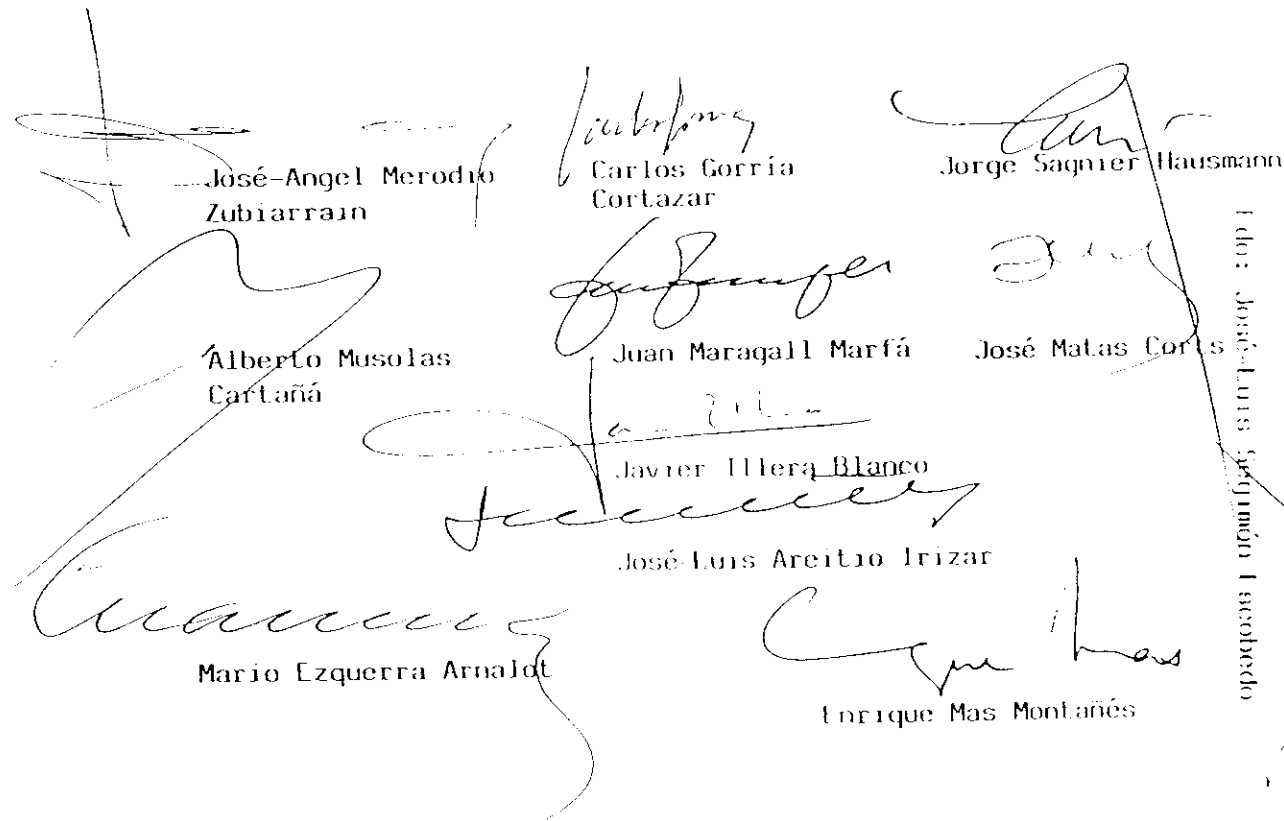 José-Angel Merodio
Zubiarrain
Carlos Gorría
Cortazar
Jorge Sagnier Hausmann
Alberto Musolas
Cartañá
Juan Maragall Marfá
José Matas Corts
Javier Illera Blanco
José-Luis Areitio Irizar
Mario Ezquerra Arnalot
Enrique Mas Montañés
Fdo: José-Luis Segimón Escobedo